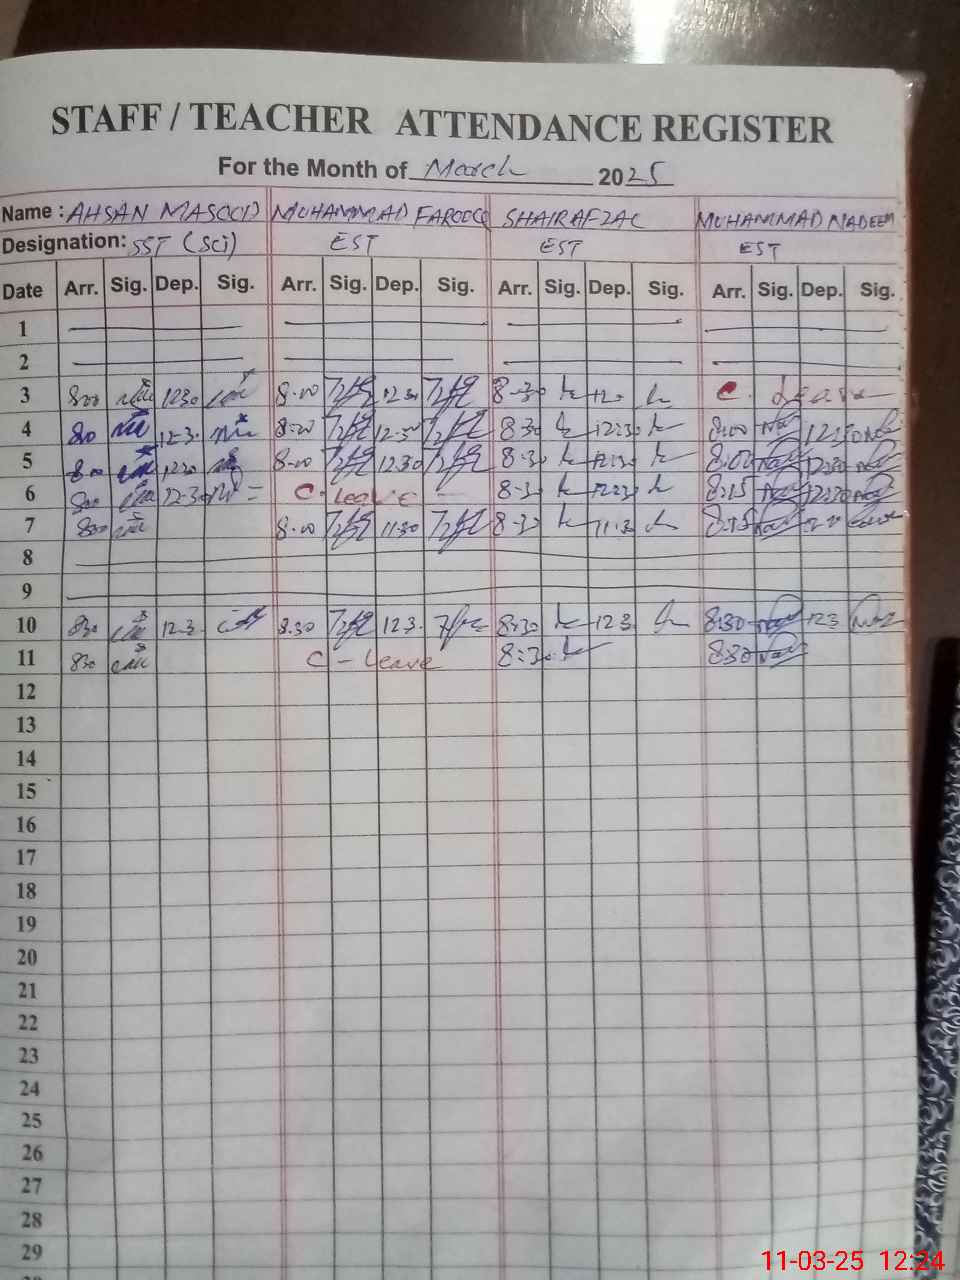 STAFF / TEACHER ATTENDANCE REGISTER
For the Month of March 2025
Name : AHSAN MASOOD MUHAMMAD FAROOQ SHAIR AFZAL MUHAMMAD NADEEM
Designation: SST (Sci) EST EST EST
Date Arr. Sig. Dep. Sig. Arr. Sig. Dep. Sig. Arr. Sig. Dep. Sig. Arr. Sig. Dep. Sig.
1
2
3 800 1230 8-00 12 30 8-30 C. Leave
4 80 12-3 8-00 12-30 8 30 12:30 8:00 12:30
5 8-00 1230 8-00 12.30 8-30 12:30 8:00 12:30
6 800 12-30 C. Leave - 8-30 12:30 8:15 12:30
7 800 8-00 11:30 8-30 11:30 8:15
8
9
10 830 12-3 8.30 123 8:30 123 8:30 123
11 830 C - Leave 8:30 8:30
12
13
14
15
16
17
18
19
20
21
22
23
24
25
26
27
28
29
11-03-25 12:24